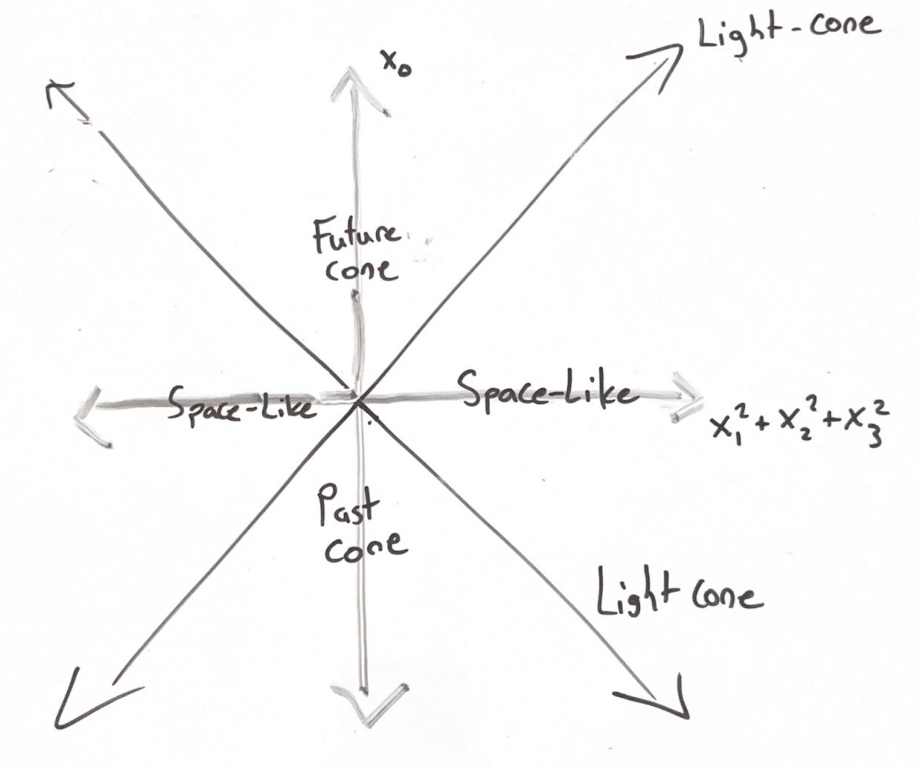 Light-cone
x₀
Future
cone
Space-Like
Space-Like
x₁²+x₂²+x₃²
Past
cone
Light cone